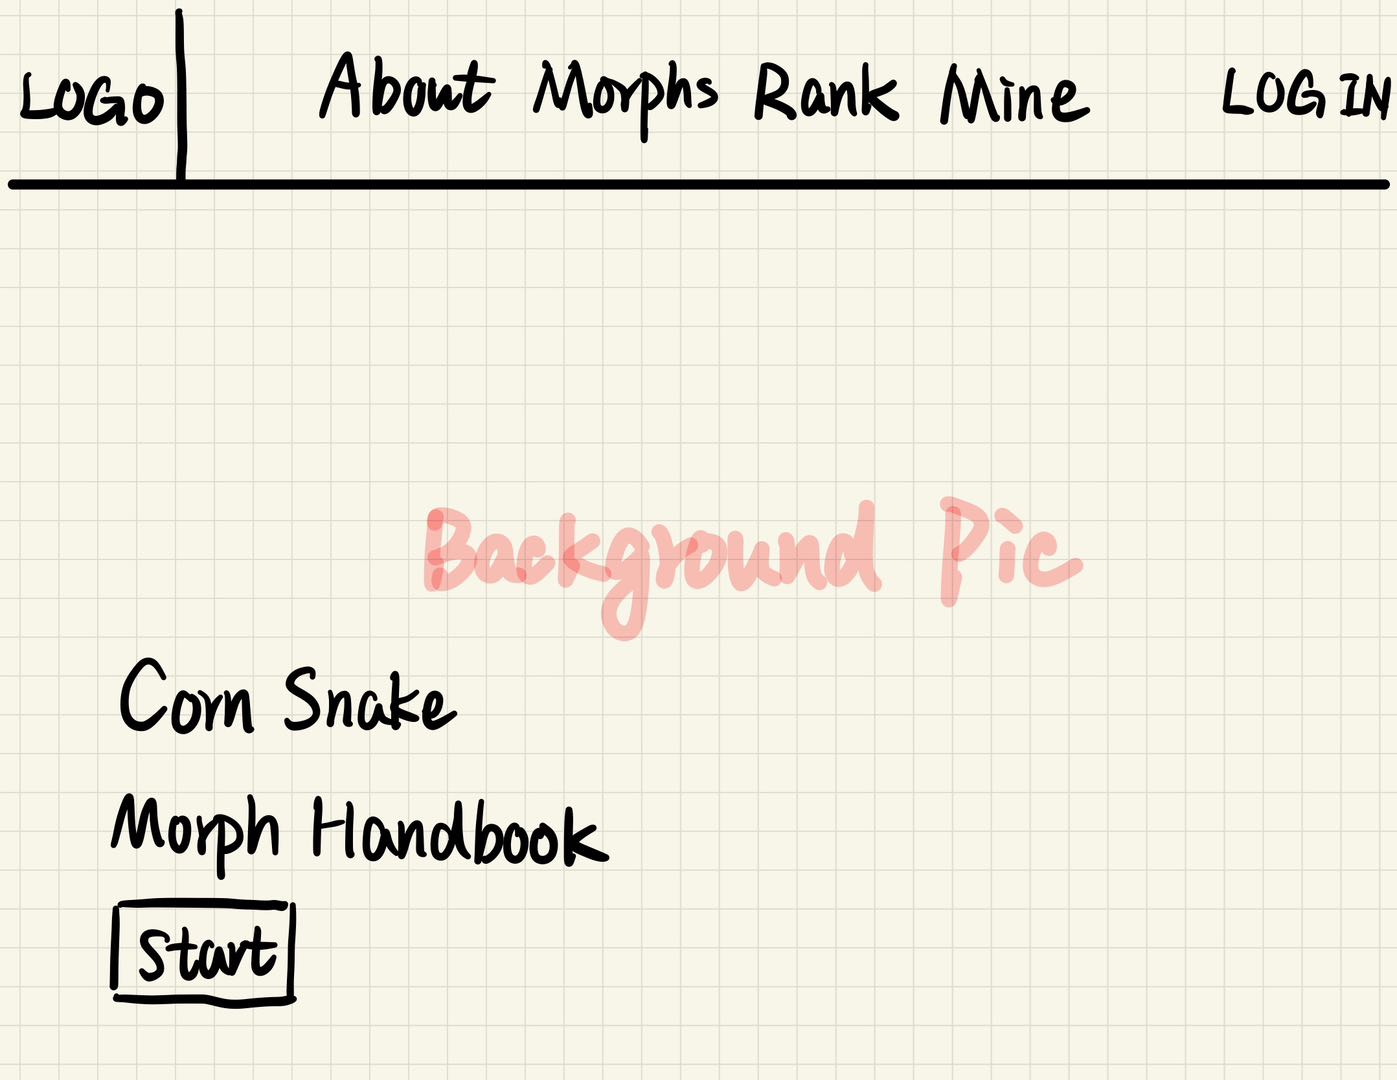 LOGO About Morphs Rank Mine LOGIN
Background Pic
Corn Snake
Morph Handbook
Start